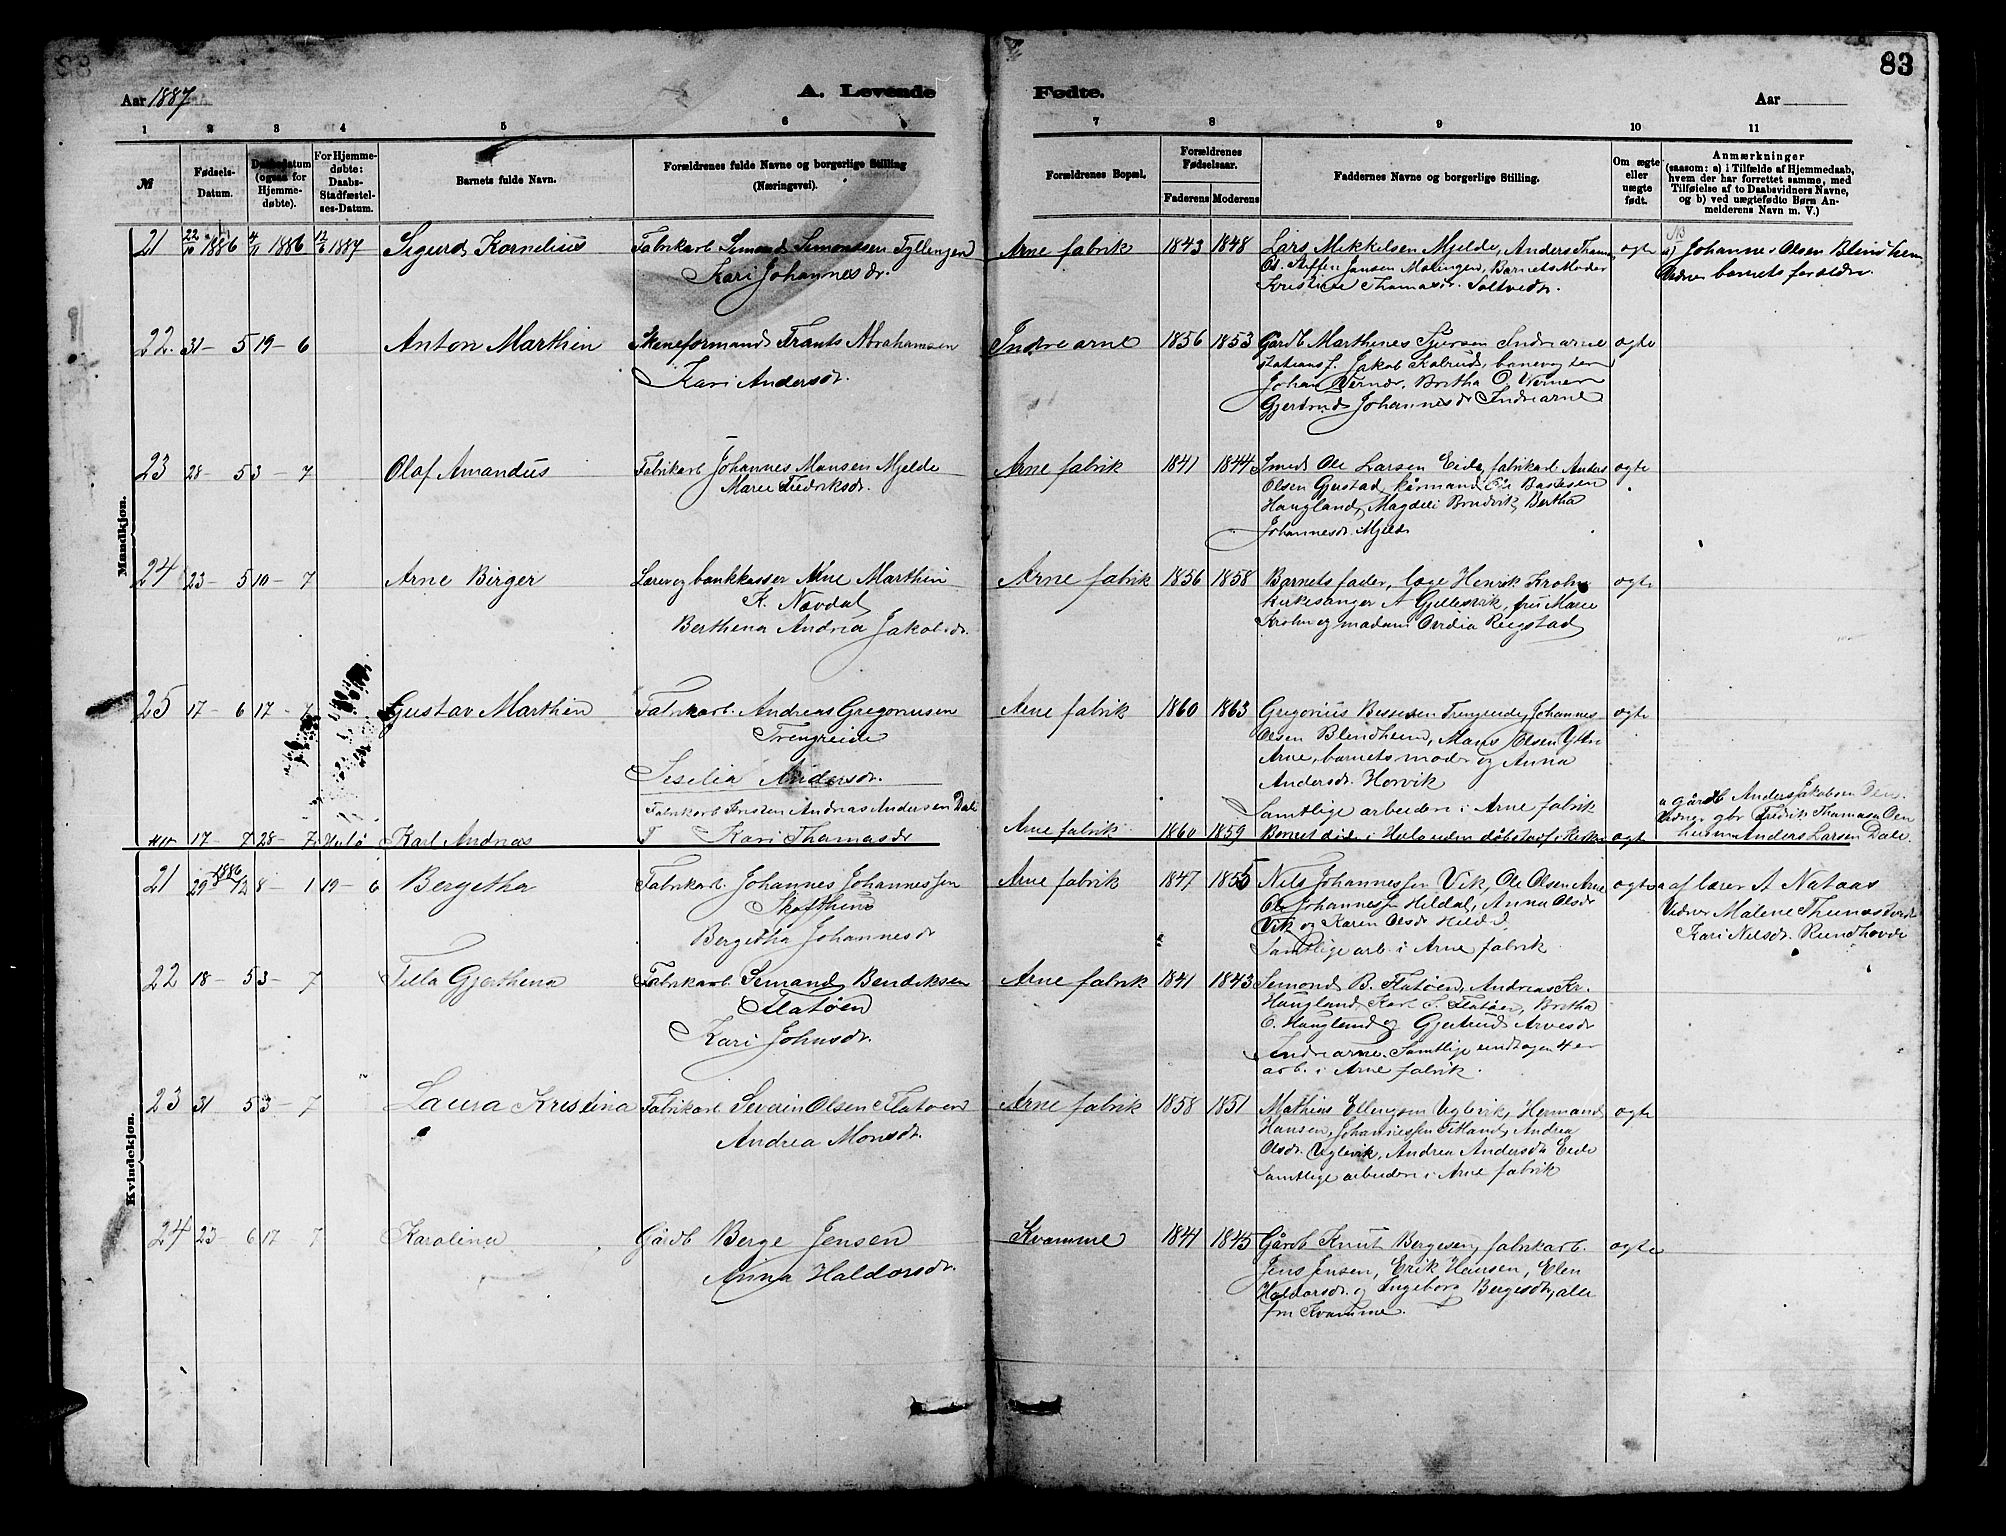 83
Aar 1887
A. Levende
Fødte.
Aar
1 2 3 4 5 6 7 8 9 10 11
№
Fødsels-
Datum.
Daabsdatum
(ogsaa for
Hjemme-
døbte).
For Hjemme-
døbte:
Daabs-
Stadfæstel-
ses-Datum.
Barnets fulde Navn.
Forældrenes fulde Navne og borgerlige Stilling
(Næringsvei).
Forældrenes Bopæl.
Forældrenes
Fødselsaar.
Faderens Moderens
Faddernes Navne og borgerlige Stilling.
Om ægte
eller
uægte
født.
Anmærkninger
(saasom: a) i Tilfælde af Hjemmedaab,
hvem der har forrettet samme, med
Tilføielse af to Daabsvidners Navne,
og b) ved uægtefødte Børn An-
melderens Navn m. V.)
Mandkjøn.
21 22/10 1886 4/11 1886 12/6 1887 Sigurd Kornelius Fabrikarb Simond Simondsen Tyllingen Arne fabrik 1843 1848 Lars Mikkelsen Mjelde, Anders Thams ogte a) Johannes Olsen Blindheim
Kari Johannesdr.
Steffen Jansen Malingen, Barnets Moder
Vidner barnets forældre.
Kristine Thamasdr. Saltvedt.
22 31 - 5 19 - 6 Anton Marthin Formand Frants Abrahamsen Indrearne 1856 1853 Gårdb Marthenes Sjursen Indrearne ogte
Kari Andersdr.
stationsf. Jakob Kalrud, banevogtern
Johan Verner. Brétha O. Werner
Gjertrud Johannesdr Indrearne
23 28 - 5 3 - 7 Olaf Amandus Fabrikarb Johannes Monsen Mjelde Arne fabrik 1841 1844 Smed Ole Larsen Eide, fabrikarb Anders ogte
Marie Fredriksdr.
Olsen Gjestad, Ole Bastesen
Haugland, Magdeli Brudvik, Bertha
Johannesdr. Mjelde
24 23 - 5 10 - 7 Arne Birger Lærer og bankkasser Arne Marthin Arne fabrik 1856 1858 Barnets fader, læge Henrik Krohn ogte
K. Nævdal
Kirkesanger A Gjellesvik, fru Marie
Berthena Andria Jakobsdr.
Krohn og madam Ovidia Reigstad
25 17 - 6 17 - 7 Gustav Marthin Fabrikarb. Andreas Gregoriusen Arne fabrik 1860 1863 Gregorius Bessesen Trengreide, Johannes ogte
Trengreide
Olsen Blindheim, Mons Olsen Ytre
Sesilia Andersdr.
Arne, barnets moder og Anna
Andersdr. Horvik
Samtlige arbeidere i Arne fabrik
17 - 7 28 - 7 Karl Andreas Fabrikarb Kristen Andreas Andersen Dale
Kari Thamasdr Arne fabrik 1860 1859 ogte
a gårdb Anders Jakobsen
Vidner gbr Fredrik Thamasen
Anders Larsen Dale.
Kvindekjøn.
21 29 - 12 1886 8 - 1 19 - 6 Bergetha Fabrikarb. Johannes Johannessen Arne fabrik 1847 1855 Nils Johannessen Vik, Ole Olsen Arne ogte a af lærer A Nataas
Bergetha Johannesdr
Ole Johannessen Hildal, Anna Olsdr
Vidner Malene Thunes
Vik og Karen Olsdr Hildal.
Kari Nilsdr. Rundhovde
Samtlige arb. i Arne fabrik.
22 18 - 5 3 - 7 Tella Gjerthena Fabrikarb. Simand Bendiksen Arne fabrik 1841 1843 Semond B. Flatøen, Andreas Kr.
Flatøen
Haugland, Karl S. Flatøen, Britha
Kari Johnsdr.
O. Haugland og Gjertrud Arnesdr
Indrearne. Samtlige undtagen 4 er
arb. i Arne fabrik.
23 31 5 3 - 7 Laura Kristina Fabrikarb Severin Olsen Flatøen Arne fabrik 1858 1851 Mathias Ellingsen Uglevik, Hermand ogte
Andrea Monsdr.
Hansen, Johannessen Tetland, Andrea
Olsdr. Uglevik, Andrea Andersdr Eide
Samtlige arbeidere i Arne fabrik
24 23 - 6 17 - 7 Karolina Gårdb Berge Jensen Kvamme 1841 1845 Gårdb Knut Bergesen, fabrikarb. ogte
Anna Haldorsdr.
Jens Jensen, Erik Hansen, Elen
Haldorsdr. og Ingeborg Bergesdr, alle
fra Kvamme.